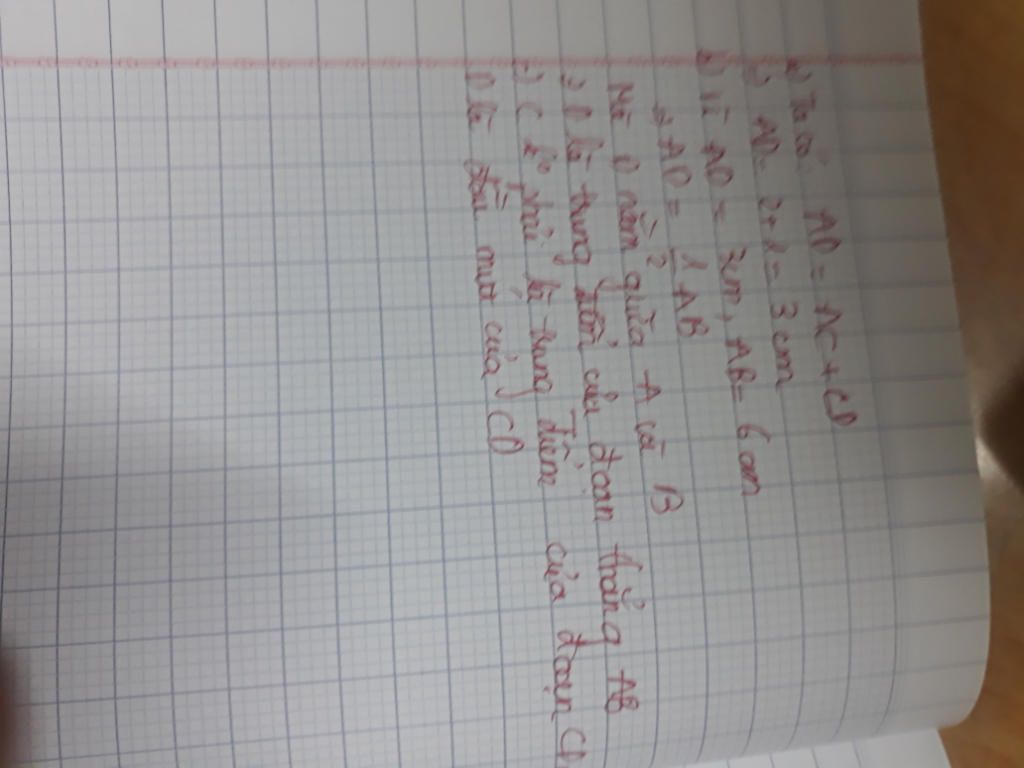 a) Ta có: AD = AC + CD
=) AD = 2 + 1 = 3 cm
b) Vì AD = 3cm, AB = 6 cm
=> AD = 1/2 AB
Mà D nằm giữa A và B
=) D là trung điểm của đoạn thẳng AB
c) C k° phải là trung điểm của đoạn CD
D là đầu mút của CD